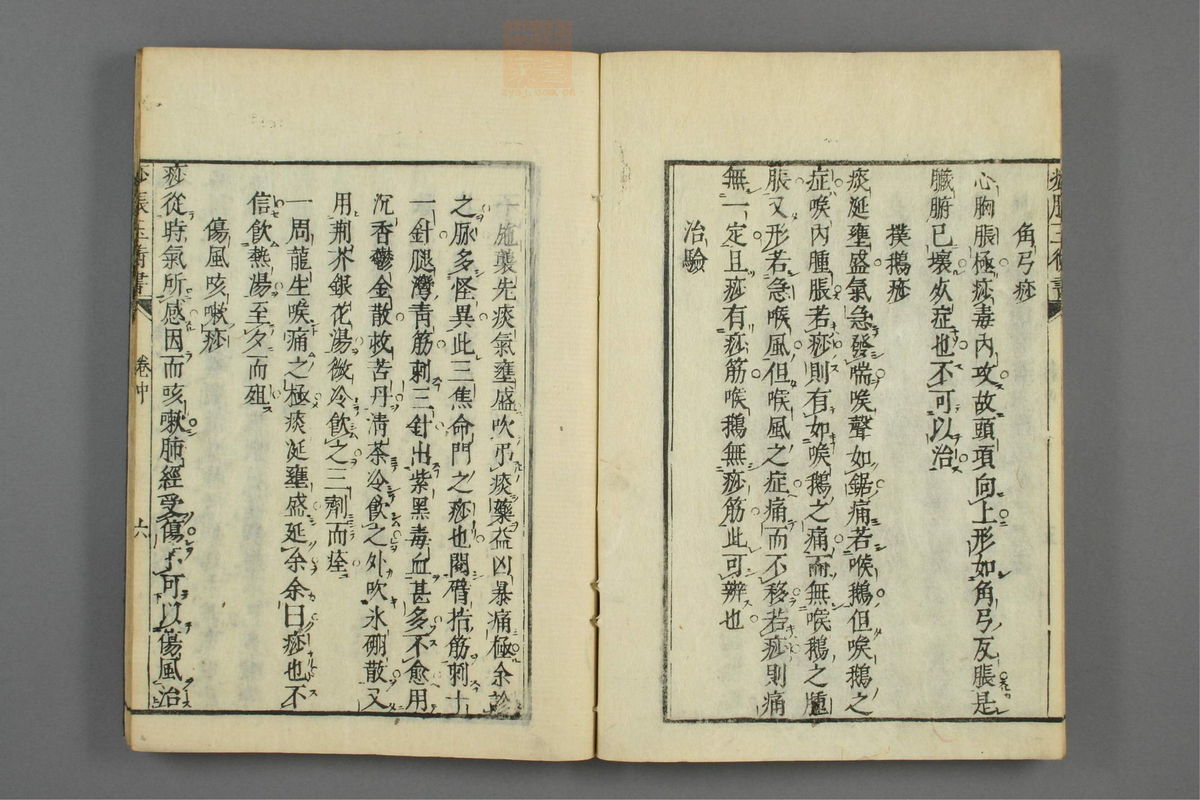 角弓痧
心胸脹極痧毒内攻故頭項向上形如角弓反脹是
臟腑已壞必症也不可以治
撲鵝痧
痰涎壅盛氣急發喘喉聲如鋸痛若喉鵝但喉鵝之
症喉内腫脹若痧則有如喉鵝之痛而無喉鵝之腫
脹又形若急喉風但喉風之症痛而不移若痧則痛
無一定且痧有痧筋喉鵝無痧筋此可辨也
治驗
施襲先痰氣壅盛吹吊痰藥益凶暴痛極余診
之脉多怪異此三焦命門之痧也閱臂指筋刺十
一針腿灣青筋刺三針出紫黑毒血甚多不愈用
沉香鬱金散救苦丹清茶冷飲之外吹氷硼散又
用荆芥銀花湯微冷飲之三劑而痊
一周龍生喉痛之極痰涎壅盛延余余曰痧也不
信飲熱湯至夕而殂
傷風咳嗽痧
痧從時氣所感因而咳嗽肺經受傷不可以傷風治
痧脹玉衡書
卷中
六